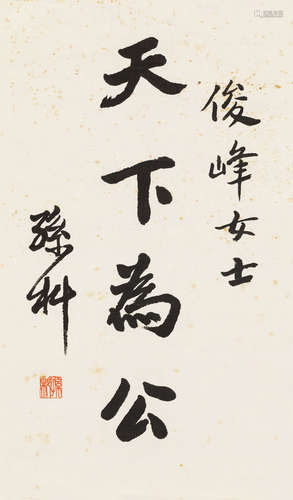 俊峰女士
天下為公
孫科